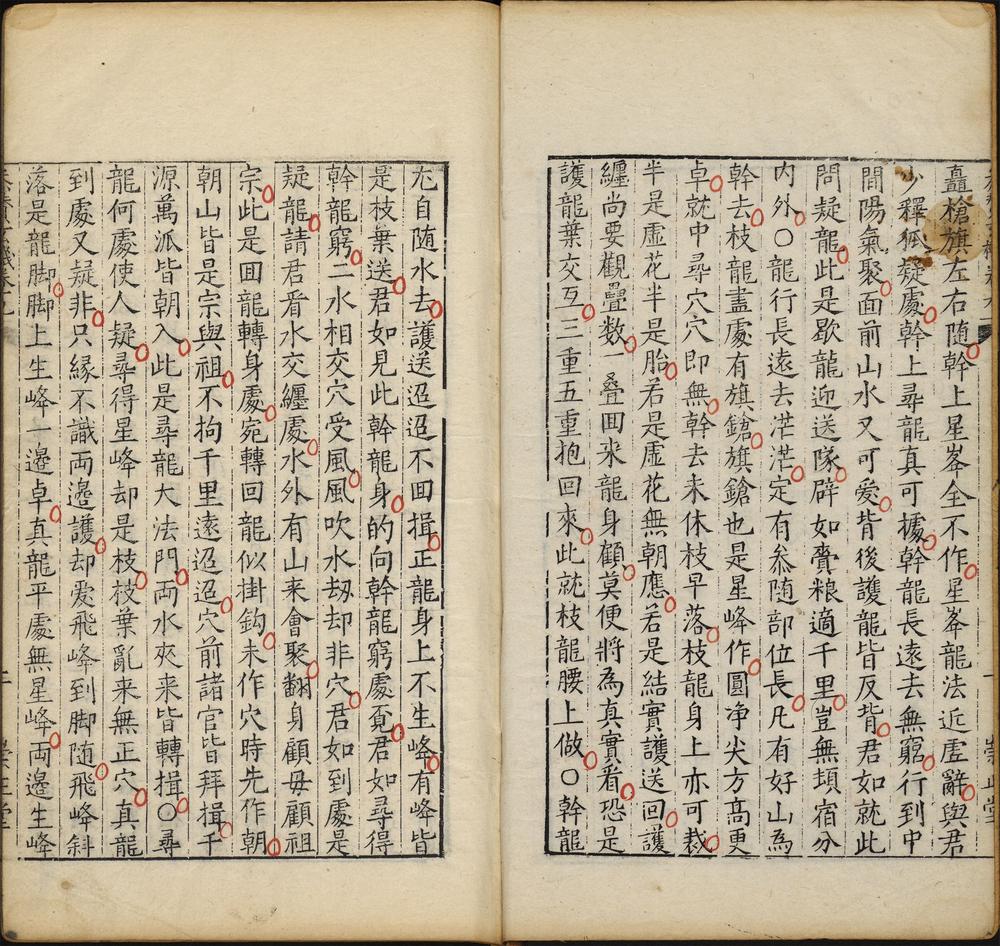 纛槍旗左右隨幹上星峯全不作星峯龍法近虛辭與君
少釋狐疑處幹上尋龍真可㩀幹龍長遠去無窮行到中
間陽氣聚面前山水又可愛背後護龍皆反背君如就此
問疑龍此是歇龍迎送隊辟如賫粮適千里豈無頓宿分
内外○龍行長遠去茫茫定有叅隨部位長凡有好山為
幹去枝龍盡處有旗鎗旗鎗也是星峰作圓净尖方髙更
卓就中尋穴穴即無幹去未休枝早落枝龍身上亦可裁
半是虛花半是胎若是虛花無朝應若是結實護送回護
纏尚要觀疊數一叠囬来龍身顧莫便將為真實看恐是
護龍葉交互三重五重抱回來此就枝龍腰上做○幹龍
尢自随水去護送迢迢不囬揖正龍身上不生峰有峰皆
是枝葉送君如見此幹龍身的向幹龍窮處覔君如尋得
幹龍窮二水相交穴受風風吹水刼却非穴君如到處是
疑龍請君看水交纏處水外有山来會聚翻身顧母顧祖
宗此是囬龍轉身處宛轉回龍似掛鈎未作穴時先作朝
朝山皆是宗與祖不拘千里遠迢迢穴前諸官皆拜揖千
源萬派皆朝入此是尋龍大法門両水夾来皆轉揖○尋
龍何處使人疑尋得星峰却是枝枝葉亂来無正穴真龍
到處又疑非只緣不識両邉護却爱飛峰到脚随飛峰斜
落是龍脚脚上生峰一邉卓真龍平處無星峰両邉生峰